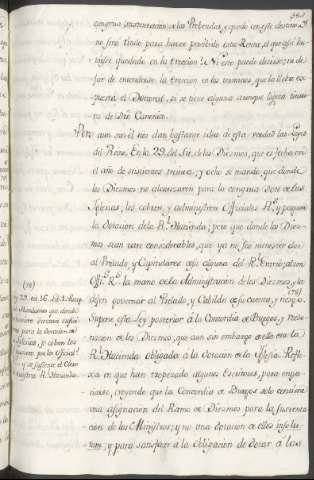 congrua manutencion a las Prebendas, y quede en este destino
no tiene titulo para haver perdido esta Renta, si que asi hu-
viese quedado en la ereccion. Ni esto puede decirse; a de-
jar de entenderse la ereccion en los terminos, que la lleva ex-
puesta el Doctoral, si se tiene alguna aunque ligera tintu-
ra de Dro Canonico.
Pero aun sin él nos dan bastante idea de esta verdad las Leyes
del Reino. En la 29. del tit. de los Diezmos, que es fecha en
el año de quinientos treinta, y ocho se manda, que donde
los Diezmos no alcanzaren para la congrua dote de las
Iglesias, los cobren y administren Officiales Rs. y paguen
la Dotacion de la Rl. Hacienda; pero que donde los Diez-
mos sean tan considerables, que ya no sea menester dar
al Prelado, y Capitulares cosa alguna del Rl. Erario; alcen
Offs. Rs. la mano de la Administracion de los Diezmos, y la
dejen governar al Prelado, y Cabildo de su cuenta, y riesgo.
Supone esta Ley posterior á la Concordia de Burgos, y Redo-
nacion de los Diezmos, que aun sin embargo de ella está la
Rl. Hacienda obligada á la Dotacion de la Iglesia. Refle-
xa en que han tropezado algunos Escritores, para enga-
ñarse, creyendo que la Concordia de Burgos solo contiene
una asignacion del Ramo de Diezmos para la sustenta-
cion de los Ministros; y no una dotacion de ellos insolu-
tum; y para satisfacer á la Obligacion de dotar á las
29. tit. 16. lib. 1. Recop.
Mandamos que donde
los Diezmos no
para la dotacion de
Iglesias, se cobren los
Diezmos por los Official.
y se sustente el Clero
nuestra Rl. Hacienda.